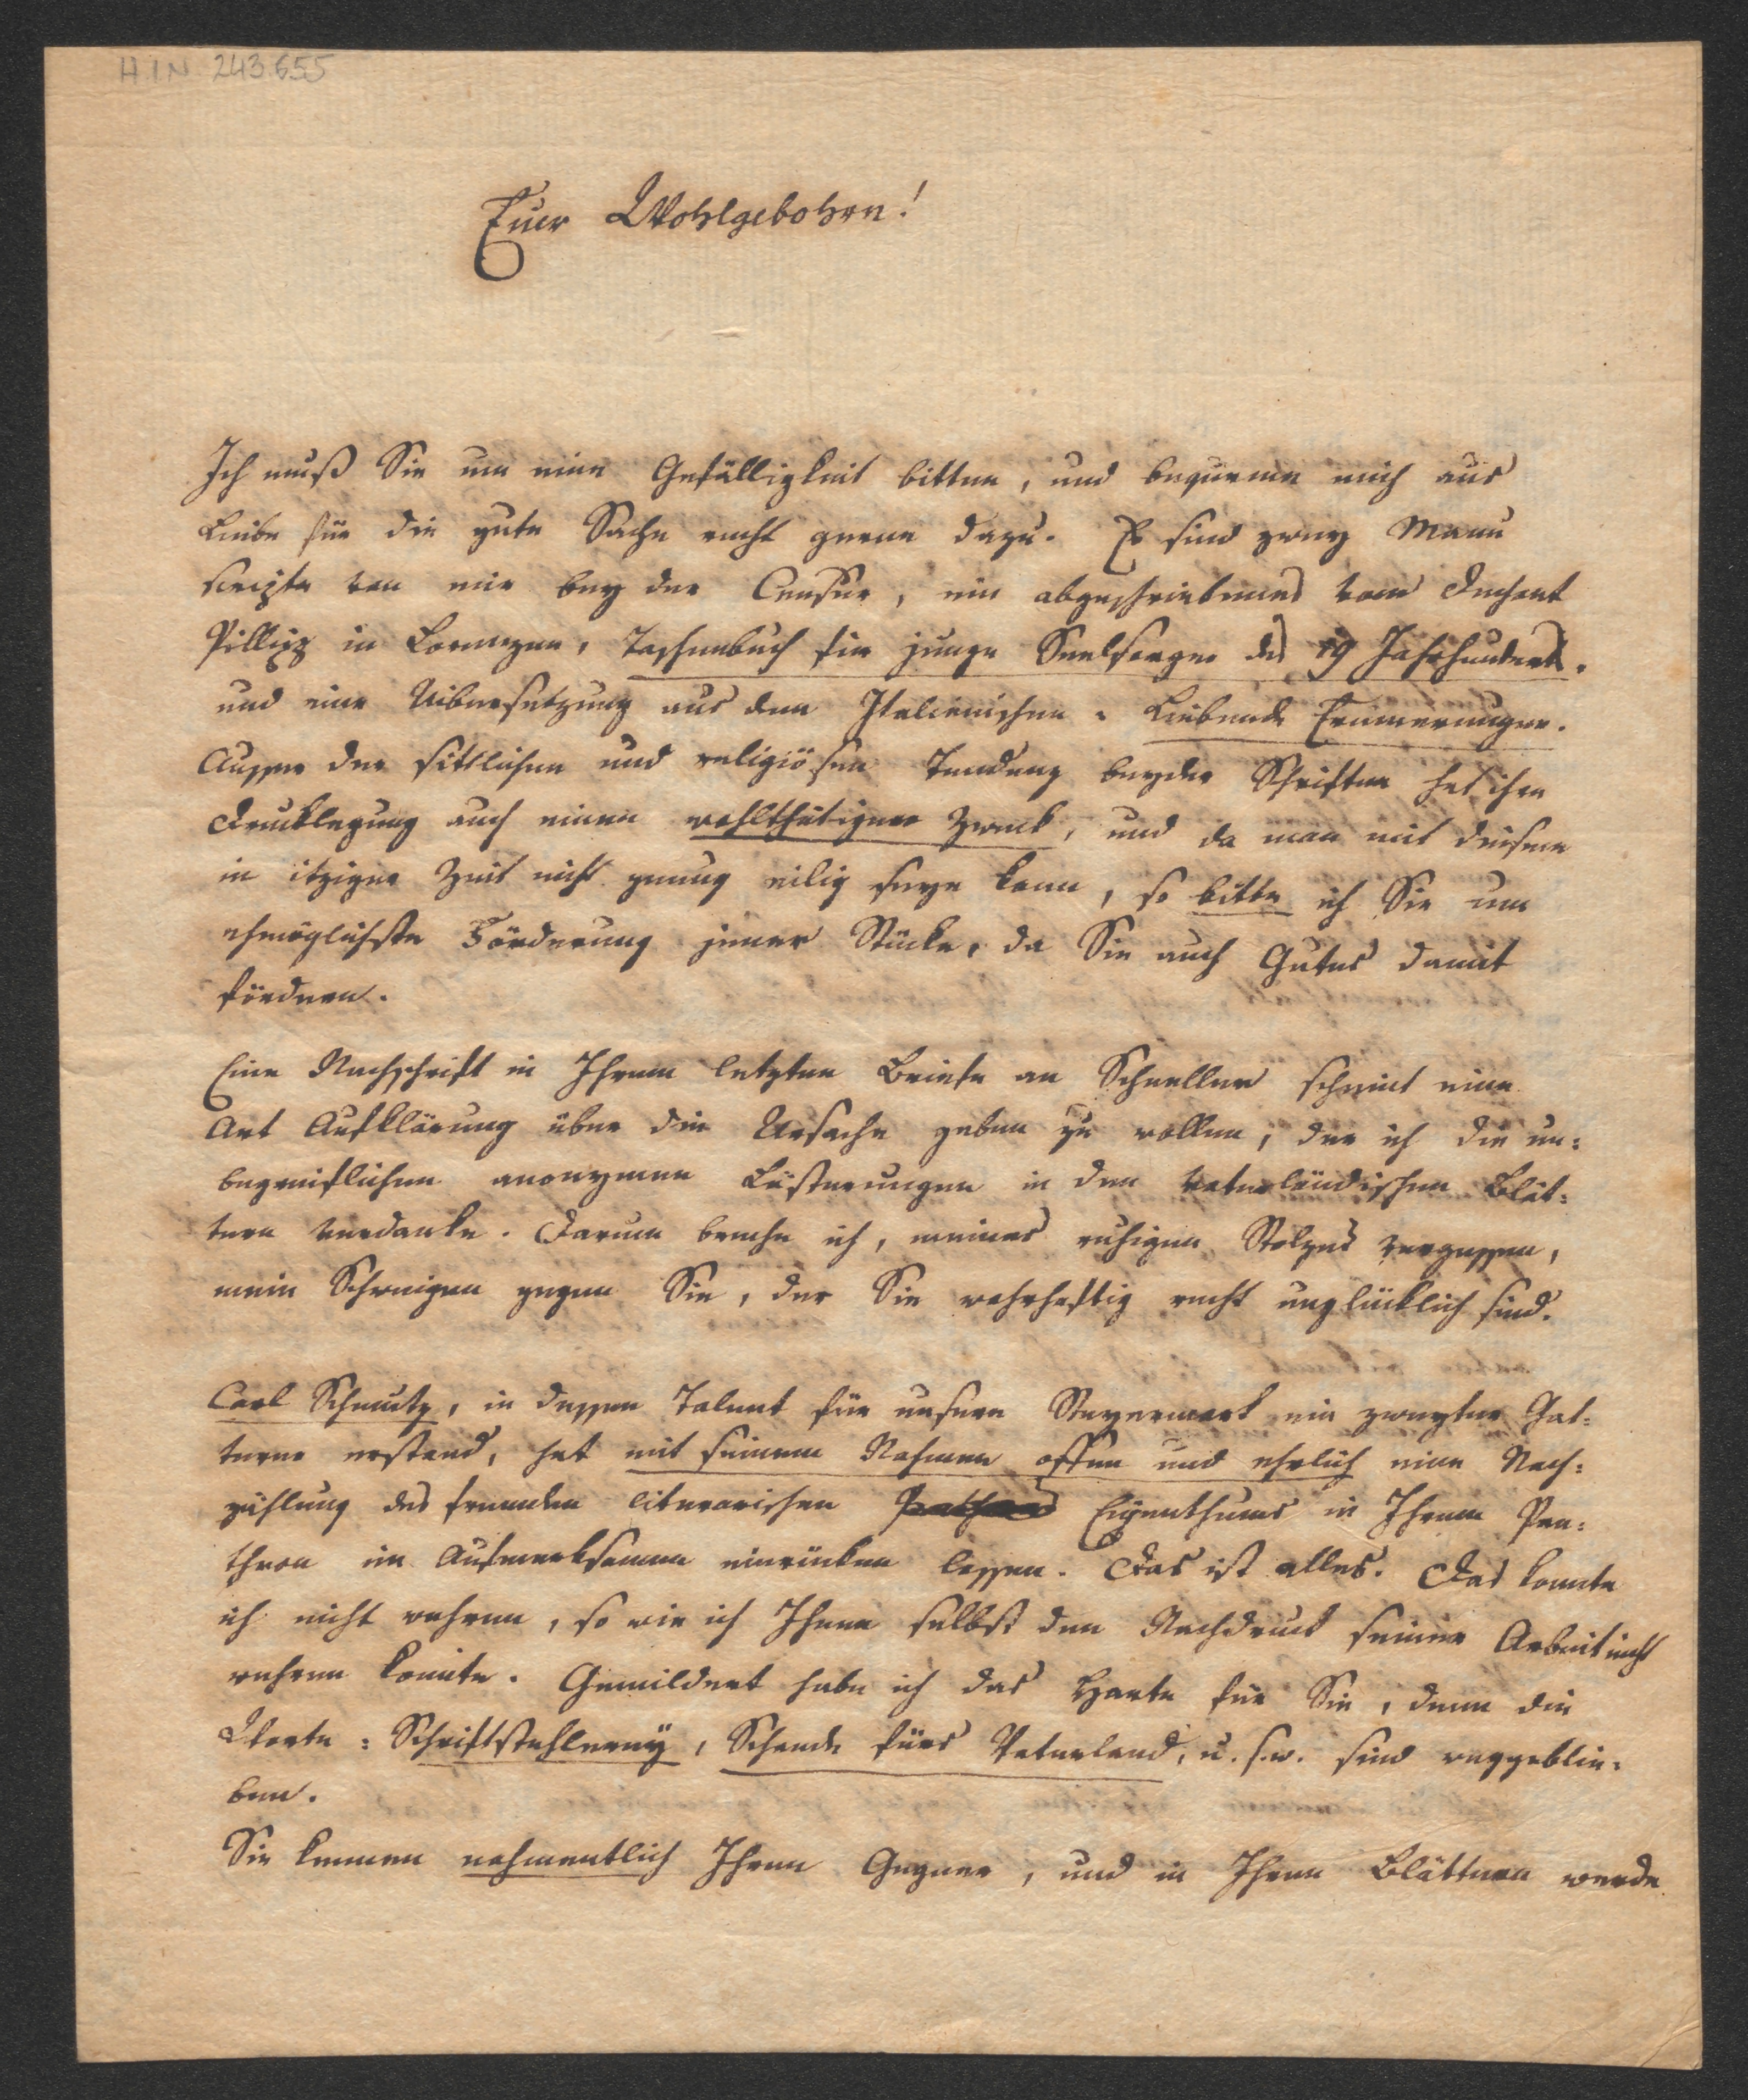 H.I.N. 243.655
Euer Wohlgebohrn!
Ich muß Sie um eine Gefälligkeit bitten, und bequeme mich aus
Liebe für die gute Sache recht gerne dazu. Es sind zwey Manu
scripte von mir bey der Censur, ein abgeschriebenes vom Dechant
in Taschenbuch für junge Seelsorger des 19 Jahrhunderts.
und eine Uibersetzung aus dem Italienischen = Liebende Erinnerungen.
Ausser der sittlichen und religiösen Tendenz beyder Schriften hat ihre
Drucklegung auch einen wohlthätigen Zweck, und da man mit diesem
in itziger Zeit nicht genug eilig seyn kann, so bitte ich Sie um
ehmöglichste Förderung jener Stücke, da Sie auch Gutes damit
fördern.
Eine Nachschrift in Ihrem letzten Briefe an Schneller scheint eine
Art Aufklärung über die Ursache geben zu wollen, der ich die un=
begreiflichen anonymen Lästerungen in den vaterländischen Blät=
tern verdanke. Darum breche ich, meines ruhigen Stolzes vergessen,
mein Schweigen gegen Sie, der Sie wahrhaftig recht unglücklich sind.
Carl Schmutz, in dessen Talent für unsere Steyermark ein zweyter Gat=
terer erstand, hat mit seinem Nahmen offen und ehrlich eine Nach=
zählung des fremden literarischen Eigenthums in Ihrem Pan=
theon im Aufmerksamen einrücken lassen. Das ist alles. Das konnte
ich nicht wehren, so wie ich Ihnen selbst den Nachdruck seiner Arbeit nicht
wehren konnte. Gemildert habe ich das Harte für Sie, denn die
Worte: Schriftstehlerey, Schande fürs Vaterland, u. s. w. sind weggeblie=
ben.
Sie kennen nahmentlich Ihren Gegner, und in Ihren Blättern werde